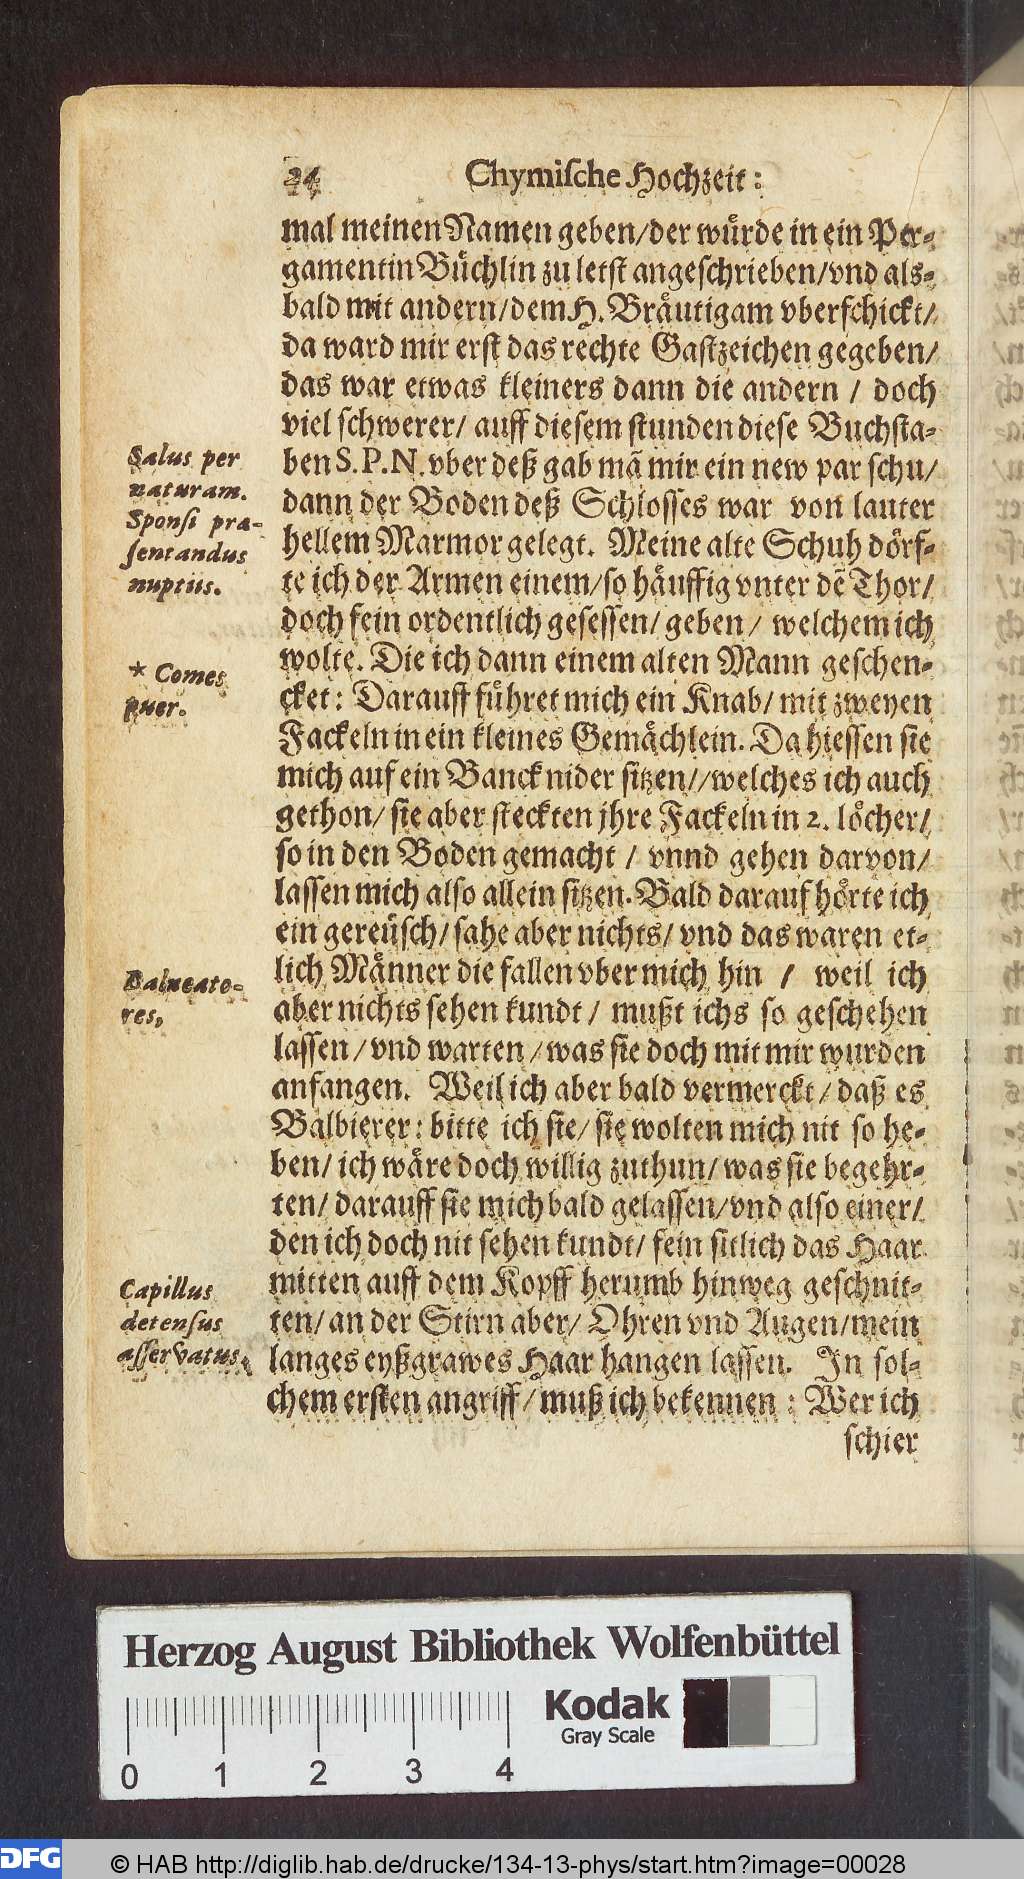 24 Chymische Hochzeit:
mal meinen Namen geben/der wuͤrde in ein Per-
gamentin Buͤchlin zu letst angeschrieben/vnd als-
bald mit andern/dem H. Braͤutigam vberschickt/
da ward mir erst das rechte Gastzeichen gegeben/
das war etwas kleiners dann die andern / doch
viel schwerer/ auff diesem stunden diese Buchsta-
ben S.P.N. vber deß gab mā mir ein new par schu/
dann der Boden deß Schlosses war von lauter
hellem Marmor gelegt. Meine alte Schuh doͤrf-
te ich der Armen einem/so haͤuffig vnter dē Thor/
doch fein ordentlich gesessen/ geben/ welchem ich
wolte. Die ich dann einem alten Mann geschen-
cket: Darauff fuͤhret mich ein Knab/ mit zweyen
Fackeln in ein kleines Gemaͤchlein. Da hiessen sie
mich auf ein Banck nider sitzen//welches ich auch
gethon/ sie aber steckten jhre Fackeln in 2. loͤcher/
so in den Boden gemacht / vnnd gehen darvon/
lassen mich also allein sitzen. Bald darauf hoͤrte ich
ein gereuͤsch/ sahe aber nichts/ vnd das waren et-
lich Maͤnner die fallen vber mich hin / weil ich
aber nichts sehen kundt / mußt ichs so geschehen
lassen /vnd warten /was sie doch mit mir wurden
anfangen. Weil ich aber bald vermerckt/ daß es
Balbierer: bitte ich sie/ sie wolten mich nit so he-
ben/ ich waͤre doch willig zuthun/ was sie begehr-
ten/ darauff sie mich bald gelassen/vnd also einer/
den ich doch nit sehen kundt/ fein sitlich das Haar
mitten auff dem Kopff herumb hinweg geschnit-
ten/ an der Stirn aber/ Ohren vnd Augen/mein
langes eyßgrawes Haar hangen lassen. In sol-
chem ersten angriff/ muß ich bekennen: Wer ich
schier
Salus per
naturam.
Sponsi præ-
sentandus
nuptiis.
* Comes
puer.
Balneato-
res,
Capillus
detensus
asservatus.
Herzog August Bibliothek Wolfenbüttel
0 1 2 3 4
Kodak
Gray Scale
DFG
© HAB http://diglib.hab.de/drucke/134-13-phys/start.htm?image=00028